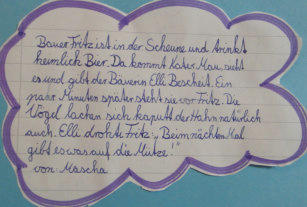 Bauer Fritz ist in der Scheune und trinkt
heimlich Bier. Da kommt Kater Mau, sieht
es und gibt der Bäuerin Elli Bescheit. Ein
paar Minuten später steht sie vor Fritz. Die
Vögel lachen sich kaputt der Hahn natürlich
auch. Elli drohte Fritz: „Beim nächten Mal
gibt es was auf die Mütze!"
von Mascha